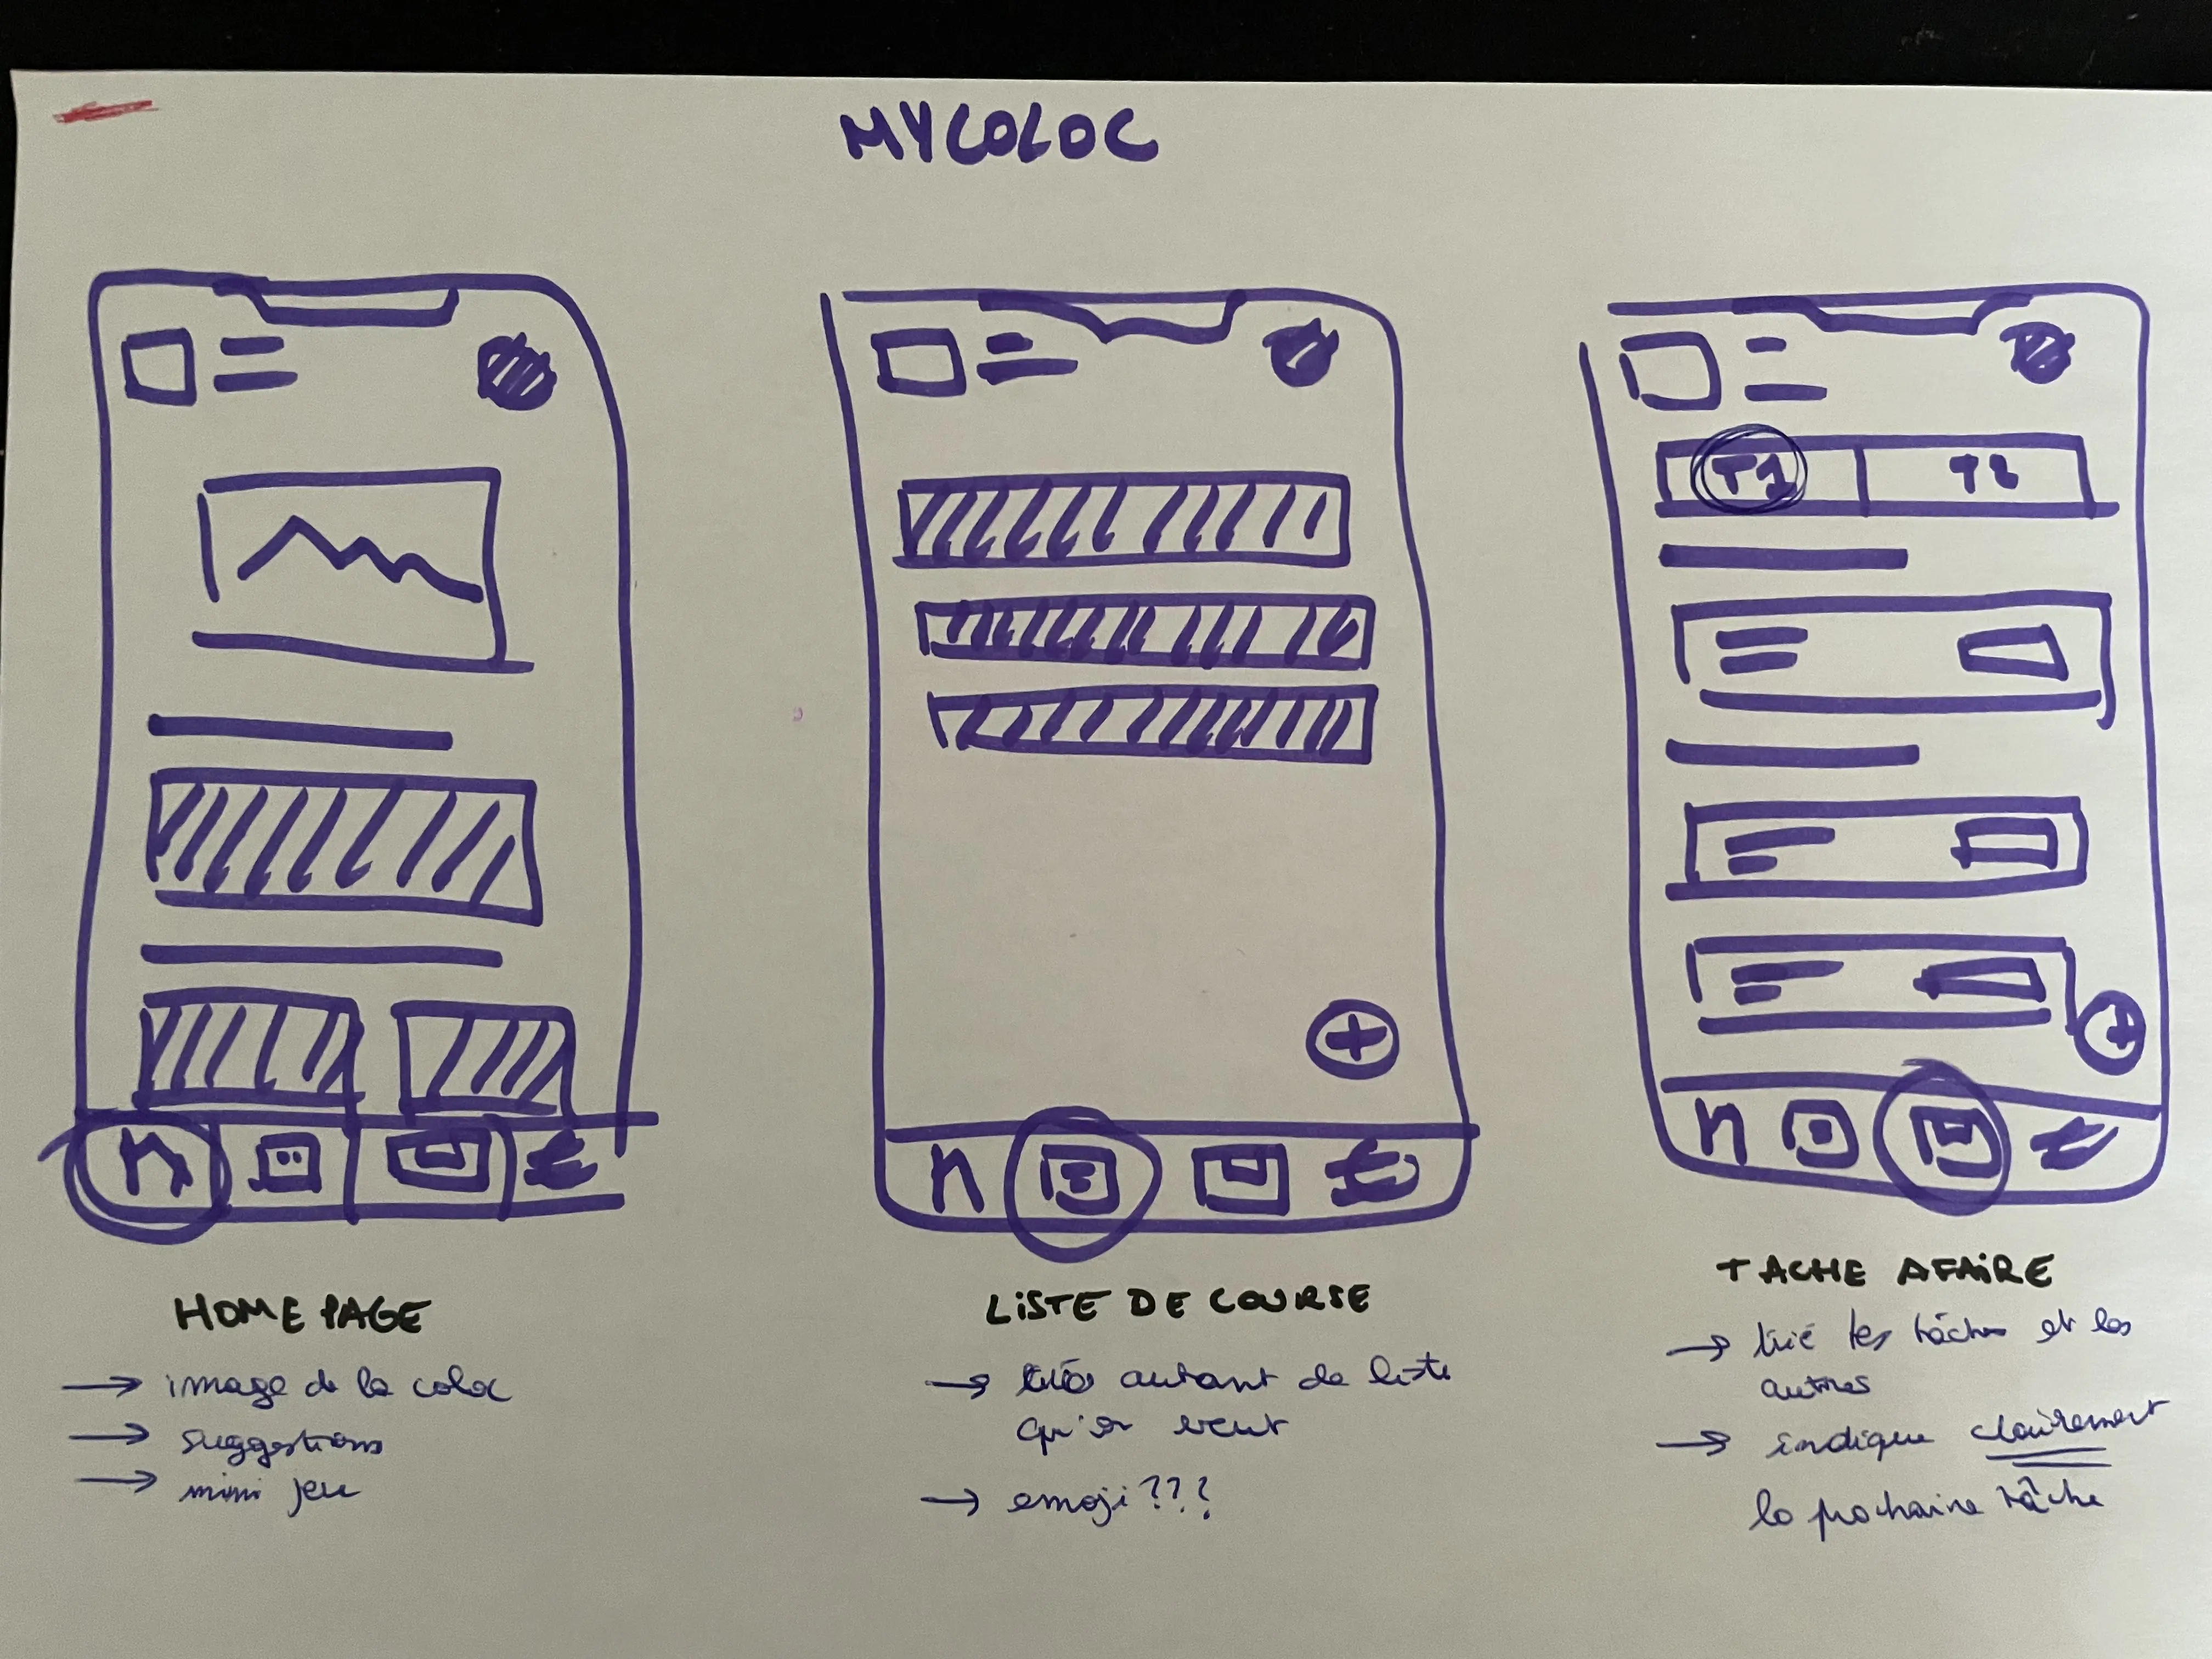 MYCOLOC
T1 T2
HOME PAGE
→ image de la coloc
→ suggestions
→ mini jeu
LISTE DE COURSE
→ autant de liste
qu'on veut
→ emoji???
TACHE A FAIRE
→ trié tes tâches et les
autres
→ indique clairement
la prochaine tâche